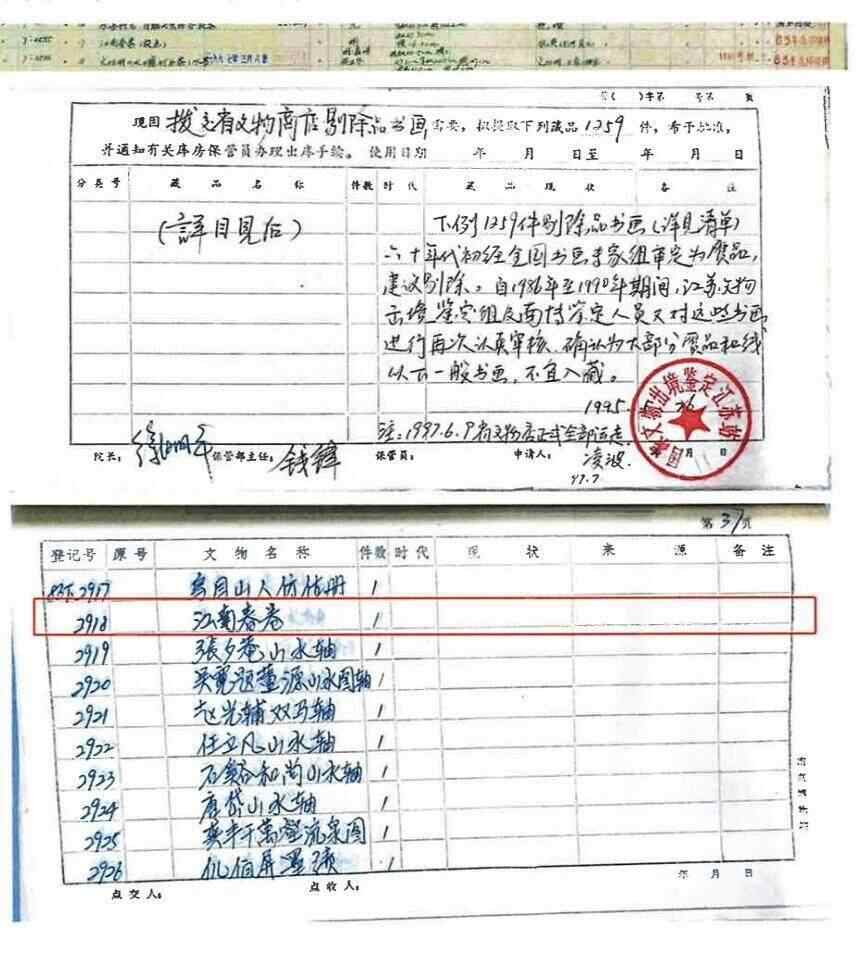 7:0055 江南春卷
号( )字第 号第 页
现因 拨交省文物商店剔除品书画 需要，拟提取下列藏品1259件，希予批准，
并通知有关库房保管员办理出库手续。 使用日期 年 月 日至 年 月 日
分类号 藏品名称 件数 时代 藏品现状 备注
（詳目見后）
下例1259件剔除品书画（详见清单）
六十年代初经全国书画专家组审定为赝品，
建议剔除。自1986年至1990年期间，江苏文物
出境鉴定组及面持鉴定人员又对这些书画
进行再次认真审核，确认为大部分赝品和线
以下一般书画，不宜入藏。
1995.
注：1997.6.9省文物店正式全部运走
院长： 徐湖平 保管部主任： 钱锋 保管员： 申请人： 凌波 月 日
97.7
国家文物出境鉴定江苏站
第37页
登记号 原号 文物名称 件数 时代 现状 来源 备注
2917 1
2918 江南春卷 1
2919 張夕菴山水轴 1
2920 吴寛题董源山水图轴 1
2921 赵光辅双马轴 1
2922 任立凡山水轴 1
2923 石谿和尚山水轴 1
2924 唐岱山水轴 1
2925 龚半千萬壑流泉图 1
2926 1
点交人： 点收人： 年 月 日